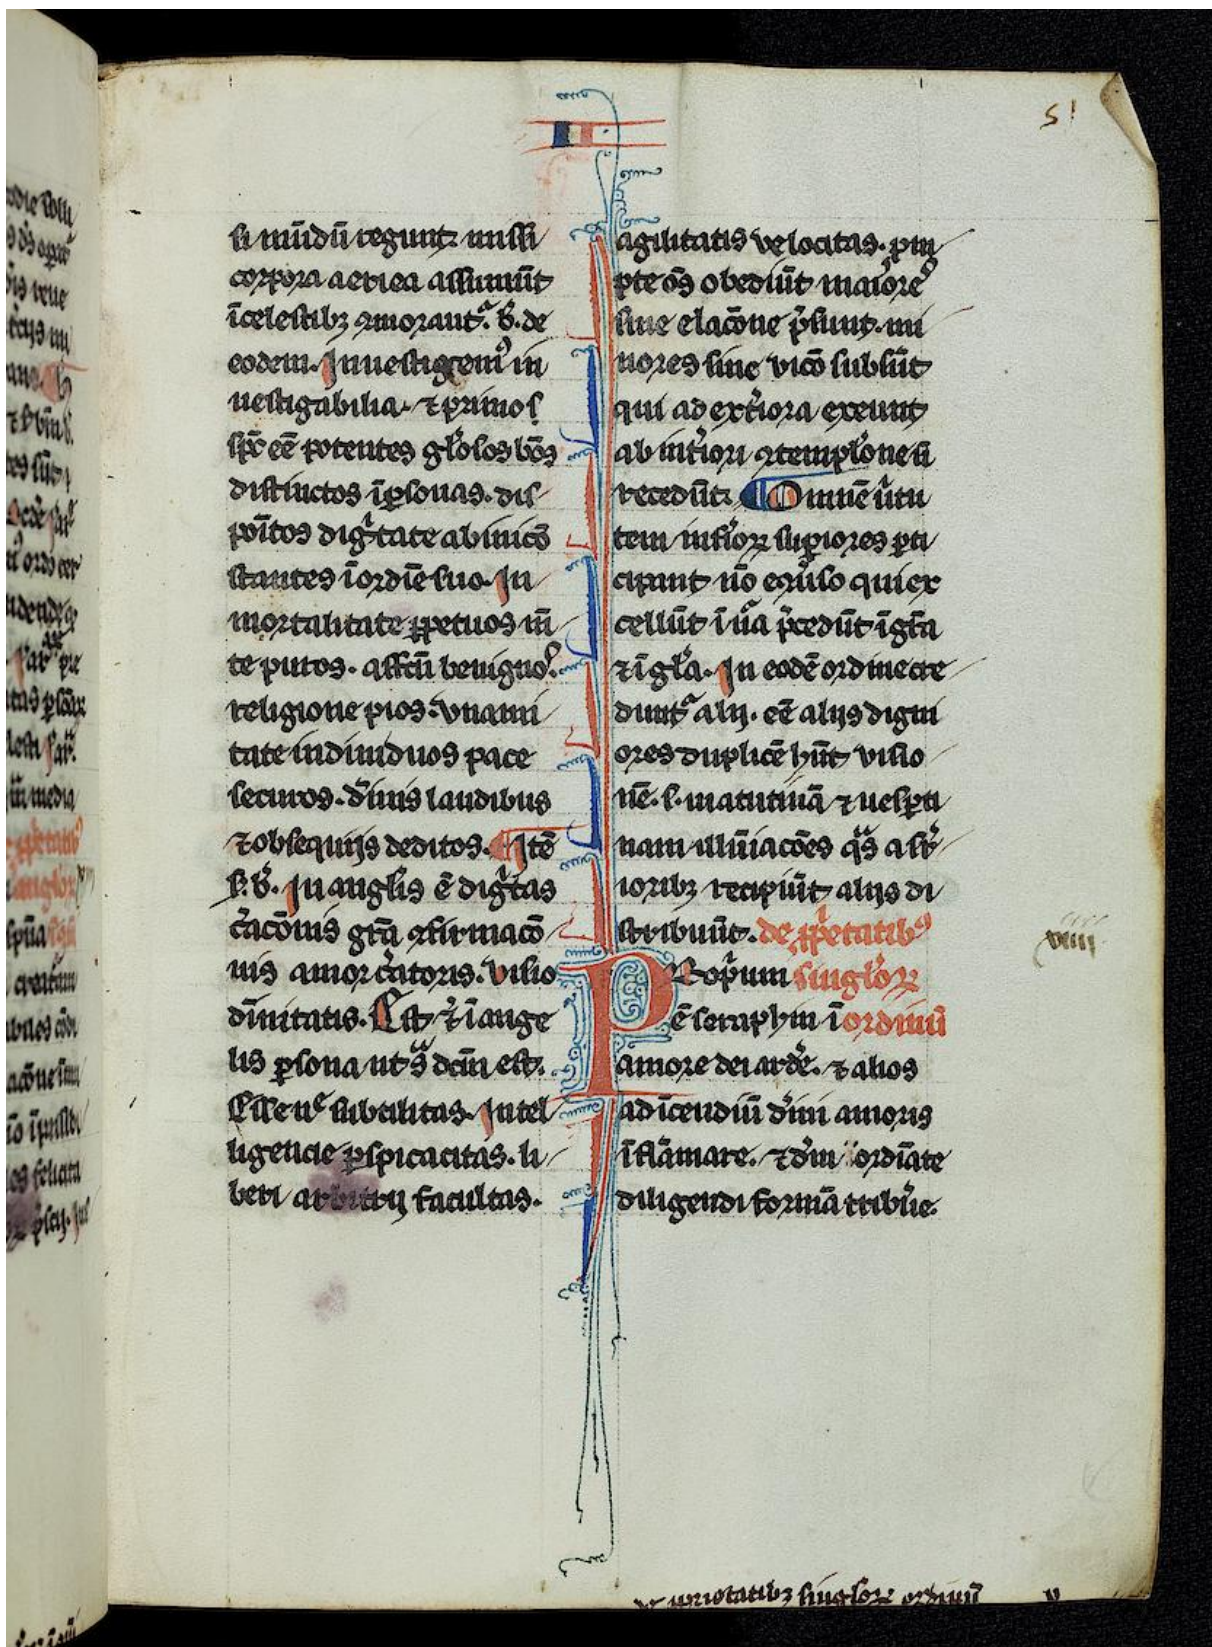 II
51
si mūdū regunt. missi
corpora aeriea assumūt
īcelestibꝫ ꝯmorant᷑. b̾. de
eodem. Inuestigem᷒ in
uestigabilia. ⁊ primo s
sp̄c eē potentes gl̾osos bōs
distinctos īꝑsonas. dis
poītos dig̾tate abinicō
stantes ī ordīe suo. In
mortalitate ꝑpetuos m̄
te puros. affcū benigno᷒.
religione pios. vnani
tate indiuiduos pace
securos. d̾inis laudibus
⁊ obsequijs deditos. Itē
s. b̾. In angl̾is ē dig̾tas
c̾acōnis gr̄a ꝯfirmacō
nis amor c̾atoris. visio
dīnitatis. Est ⁊̾ ī ange
lis ꝑsona ut sͣ dcm̄ est.
Essen͛ subtilitas. Intel
ligencie ꝑspicacitas. li
beri arbitrij facultas.
agilitatis velocitas. ꝓm
pte oēs obediūt maiore᷒
sine elacōne p̾sunt. mi
nores sine vicō subsūt
qui ad ext̾iora exeunt
ab int̾iori ꝯtempl̾one n̄
recedūt. Omnē u̾tu
tem inf̾ioꝝ supiores ꝑti
cipant nō eꝯ̾uso qui ex
cellūt ī u̾a p̾cedūt ī gr̄a
⁊ ī gl̾a. In eodē ordine cre
dunt᷑ alij. eē alijs digni
ores duplicē hn̄t visio
nē. s. matutinā ⁊ uesꝑti
nam illūīacōes qͣs a suꝑ
ioribꝫ recipiūt alijs di
stribuūt. de ꝓp̾etatib᷒
Prop̾um singl̾oꝝ
ē seraphin ī ordinū
amore dei ard̾e. ⁊ alios
ad īcendiū d̾ini amoris
īflāmare. ⁊ d̾in ordīate
diligendi formā tribu̾e.
xviiii
singl̾oꝝ ordinū